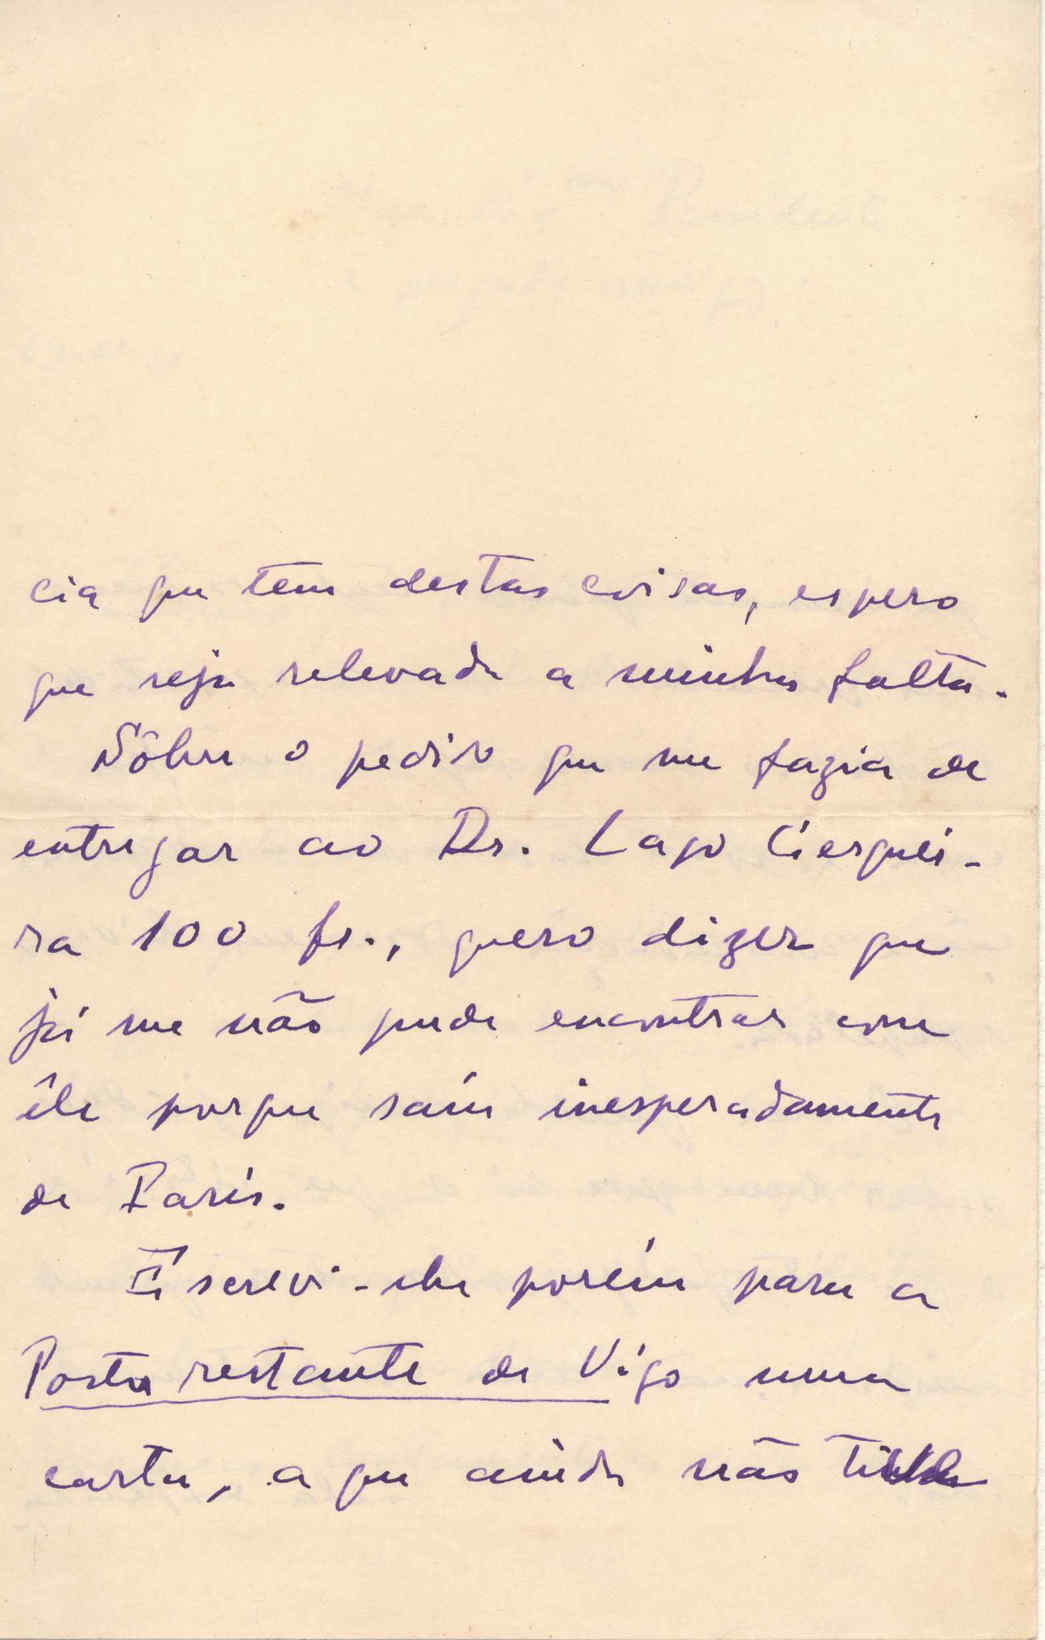 cia que tem destas coisas, espero
que seja relevada a minha falta.
Sôbre o pedido que me fazia de
entregar ao Dr. Lago Cerquei-
ra 100 fr., quero dizer que
já me não pude encontrar com
êle porque saía inesperadamente
de Paris.
Escrevi-lhe porém para a
Posta restante de Vigo uma
carta, a que ainda não